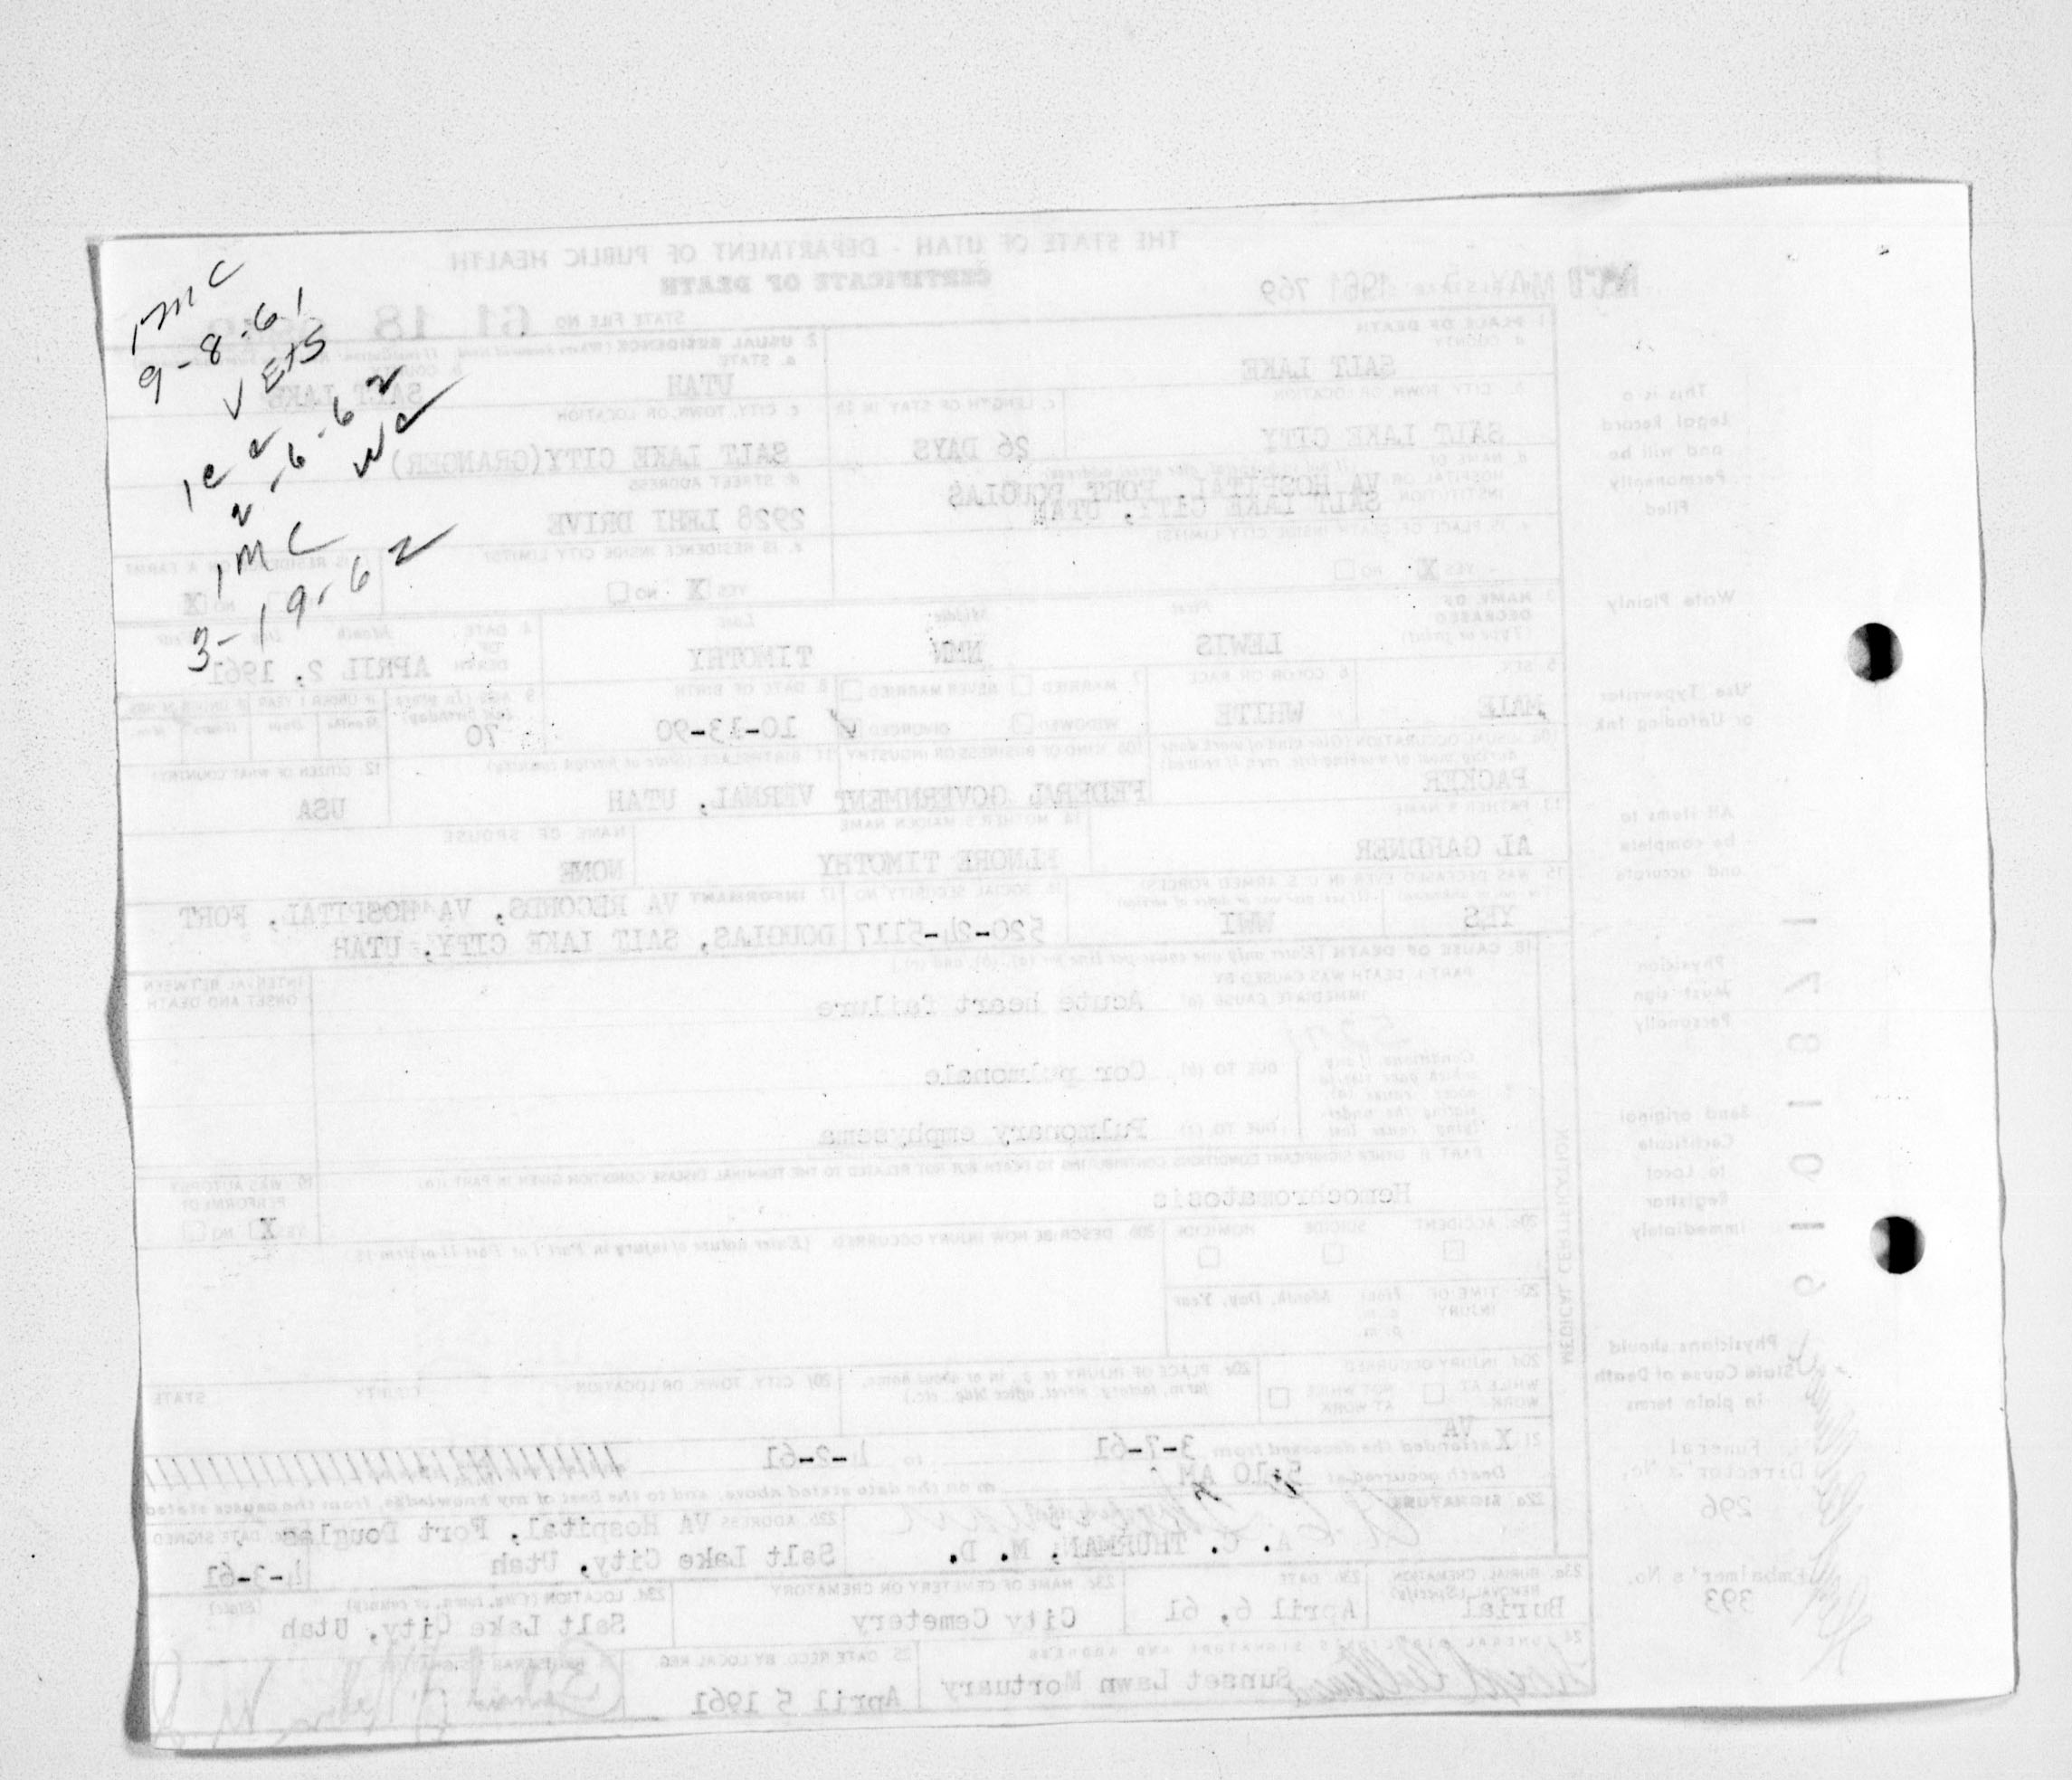 1 MC
9-8-61
VETS
1 c c
2-6-62
wc
1 MC
3-19-62
THE STATE OF UTAH - DEPARTMENT OF PUBLIC HEALTH
CERTIFICATE OF DEATH
REC'D MAY 5 1961 769
STATE FILE NO 61 18
1 PLACE OF DEATH
a COUNTY
SALT LAKE
2 USUAL RESIDENCE
a. STATE
UTAH
b COUNTY
SALT LAKE
b. CITY, TOWN, OR LOCATION
SALT LAKE CITY
c. LENGTH OF STAY IN 1b
26 DAYS
c. CITY, TOWN, OR LOCATION
SALT LAKE CITY (GRANGER)
d NAME OF HOSPITAL OR INSTITUTION
VA HOSPITAL, FORT DOUGLAS
SALT LAKE CITY, UTAH
d. STREET ADDRESS
2928 LEHI DRIVE
e. IS PLACE OF DEATH INSIDE CITY LIMITS?
YES X NO
e. IS RESIDENCE INSIDE CITY LIMITS?
YES X NO
IS RESIDENCE ON A FARM?
NO X
3 NAME OF DECEASED
(Type or print)
First Middle Last
LEWIS NMN TIMOTHY
4 DATE OF DEATH
Month Day Year
APRIL 2, 1961
5 SEX
MALE
6 COLOR OR RACE
WHITE
7. MARRIED NEVER MARRIED
WIDOWED DIVORCED
8 DATE OF BIRTH
10-13-90
9 AGE (In years last birthday)
70
IF UNDER 1 YEAR
Months Days
IF UNDER 24 HRS.
Hours Min.
10a. USUAL OCCUPATION (Give kind of work done during most of working life, even if retired)
PACKER
10b KIND OF BUSINESS OR INDUSTRY
FEDERAL GOVERNMENT
11. BIRTHPLACE (State or foreign country)
VERNAL, UTAH
12 CITIZEN OF WHAT COUNTRY?
USA
13 FATHER'S NAME
AL GARDNER
14. MOTHER'S MAIDEN NAME
ELNORE TIMOTHY
NAME OF SPOUSE
NONE
15 WAS DECEASED EVER IN U.S. ARMED FORCES?
YES WWI
16 SOCIAL SECURITY NO
520-24-5117
17 INFORMANT
VA RECORDS, VA HOSPITAL, FORT
DOUGLAS, SALT LAKE CITY, UTAH
18. CAUSE OF DEATH (Enter only one cause per line for (a), (b), and (c).)
PART I. DEATH WAS CAUSED BY
IMMEDIATE CAUSE (a) Acute heart failure
INTERVAL BETWEEN
ONSET AND DEATH
DUE TO (b) Cor pulmonale
DUE TO (c) Pulmonary emphysema
PART II OTHER SIGNIFICANT CONDITIONS CONTRIBUTING TO DEATH BUT NOT RELATED TO THE TERMINAL DISEASE CONDITION GIVEN IN PART I (a)
Hemochromatosis
19. WAS AUTOPSY PERFORMED?
YES X NO
20a. ACCIDENT SUICIDE HOMICIDE
20b DESCRIBE HOW INJURY OCCURRED (Enter nature of injury in Part I or Part II of item 18
20c TIME OF INJURY
Hour Month, Day, Year
a. m.
p. m.
20d. INJURY OCCURRED
WHILE AT WORK NOT WHILE AT WORK
20e PLACE OF INJURY (e g., in or about home, farm, factory, street, office bldg. etc.)
20f CITY, TOWN OR LOCATION COUNTY STATE
VA
21 X attended the deceased from 3-7-61 to 4-2-61
Death occurred at 5:10 AM m on the date stated above, and to the best of my knowledge, from the causes stated
22a SIGNATURE
A. C. THURMAN, M. D.
22b. ADDRESS VA Hospital, Fort Douglas
Salt Lake City, Utah
DATE SIGNED
4-3-61
23a. BURIAL CREMATION REMOVAL (Specify)
Burial
23b. DATE
April 6, 61
23c NAME OF CEMETERY OR CREMATORY
City Cemetery
23d. LOCATION (City, town, or county) (State)
Salt Lake City, Utah
24 FUNERAL DIRECTOR'S SIGNATURE AND ADDRESS
Sunset Lawn Mortuary
25 DATE RECD. BY LOCAL REG.
April 5 1961
MEDICAL CERTIFICATION
This is a
Legal Record
and will be
Permanently
Filed
Write Plainly
Use Typewriter
or Unfading Ink
All items to
be complete
and accurate
Physician
Must sign
Personally
Send original
Certificate
to Local
Registrar
immediately
Physicians should
State Cause of Death
in plain terms
Funeral
Director's No.
296
Embalmer's No.
393